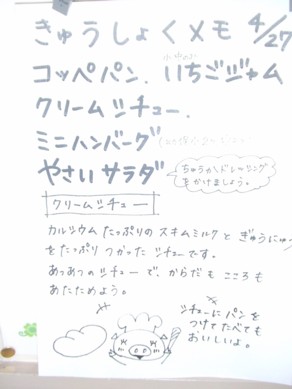 きゅうしょくメモ 4/27
コッペパン. いちごジャム
クリームシチュー.
ミニハンバーグ
やさいサラダ
ちゅうかドレッシング
をかけましょう。
クリームシチュー
カルシウム たっぷりの スキムミルク と ぎゅうにゅう
を たっぷり つかった シチュー です。
あつあつの シチュー で、からだ も こころ も
あたためよう。
シチューに パンを
つけて たべても
おいしいよ。